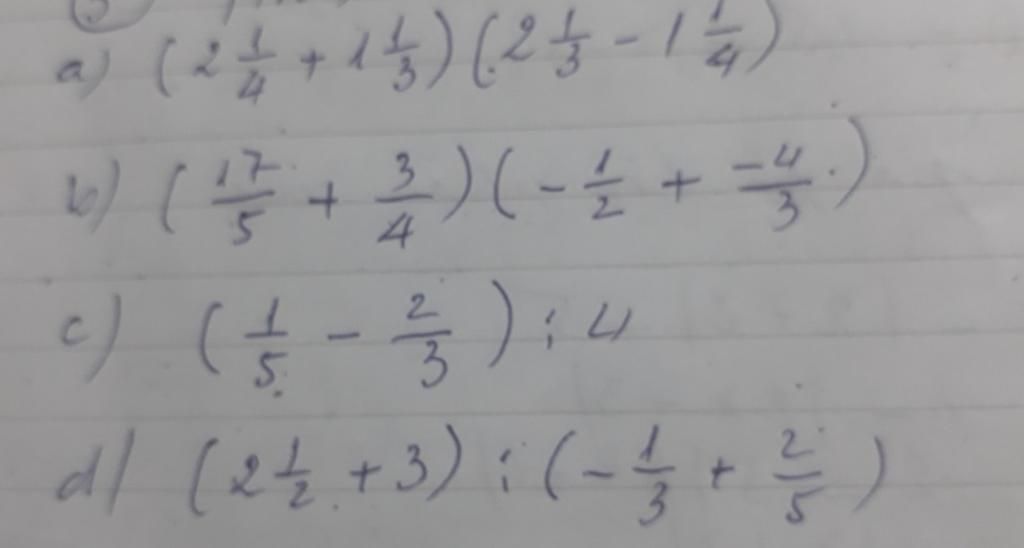 a) (2 1/4 + 1 1/3) (2 1/3 - 1 1/4)
b) (17/5 + 3/4) (- 1/2 + -4/3)
c) (1/5 - 2/3) : 4
d) (2 1/2 + 3) : (- 1/3 + 2/5)